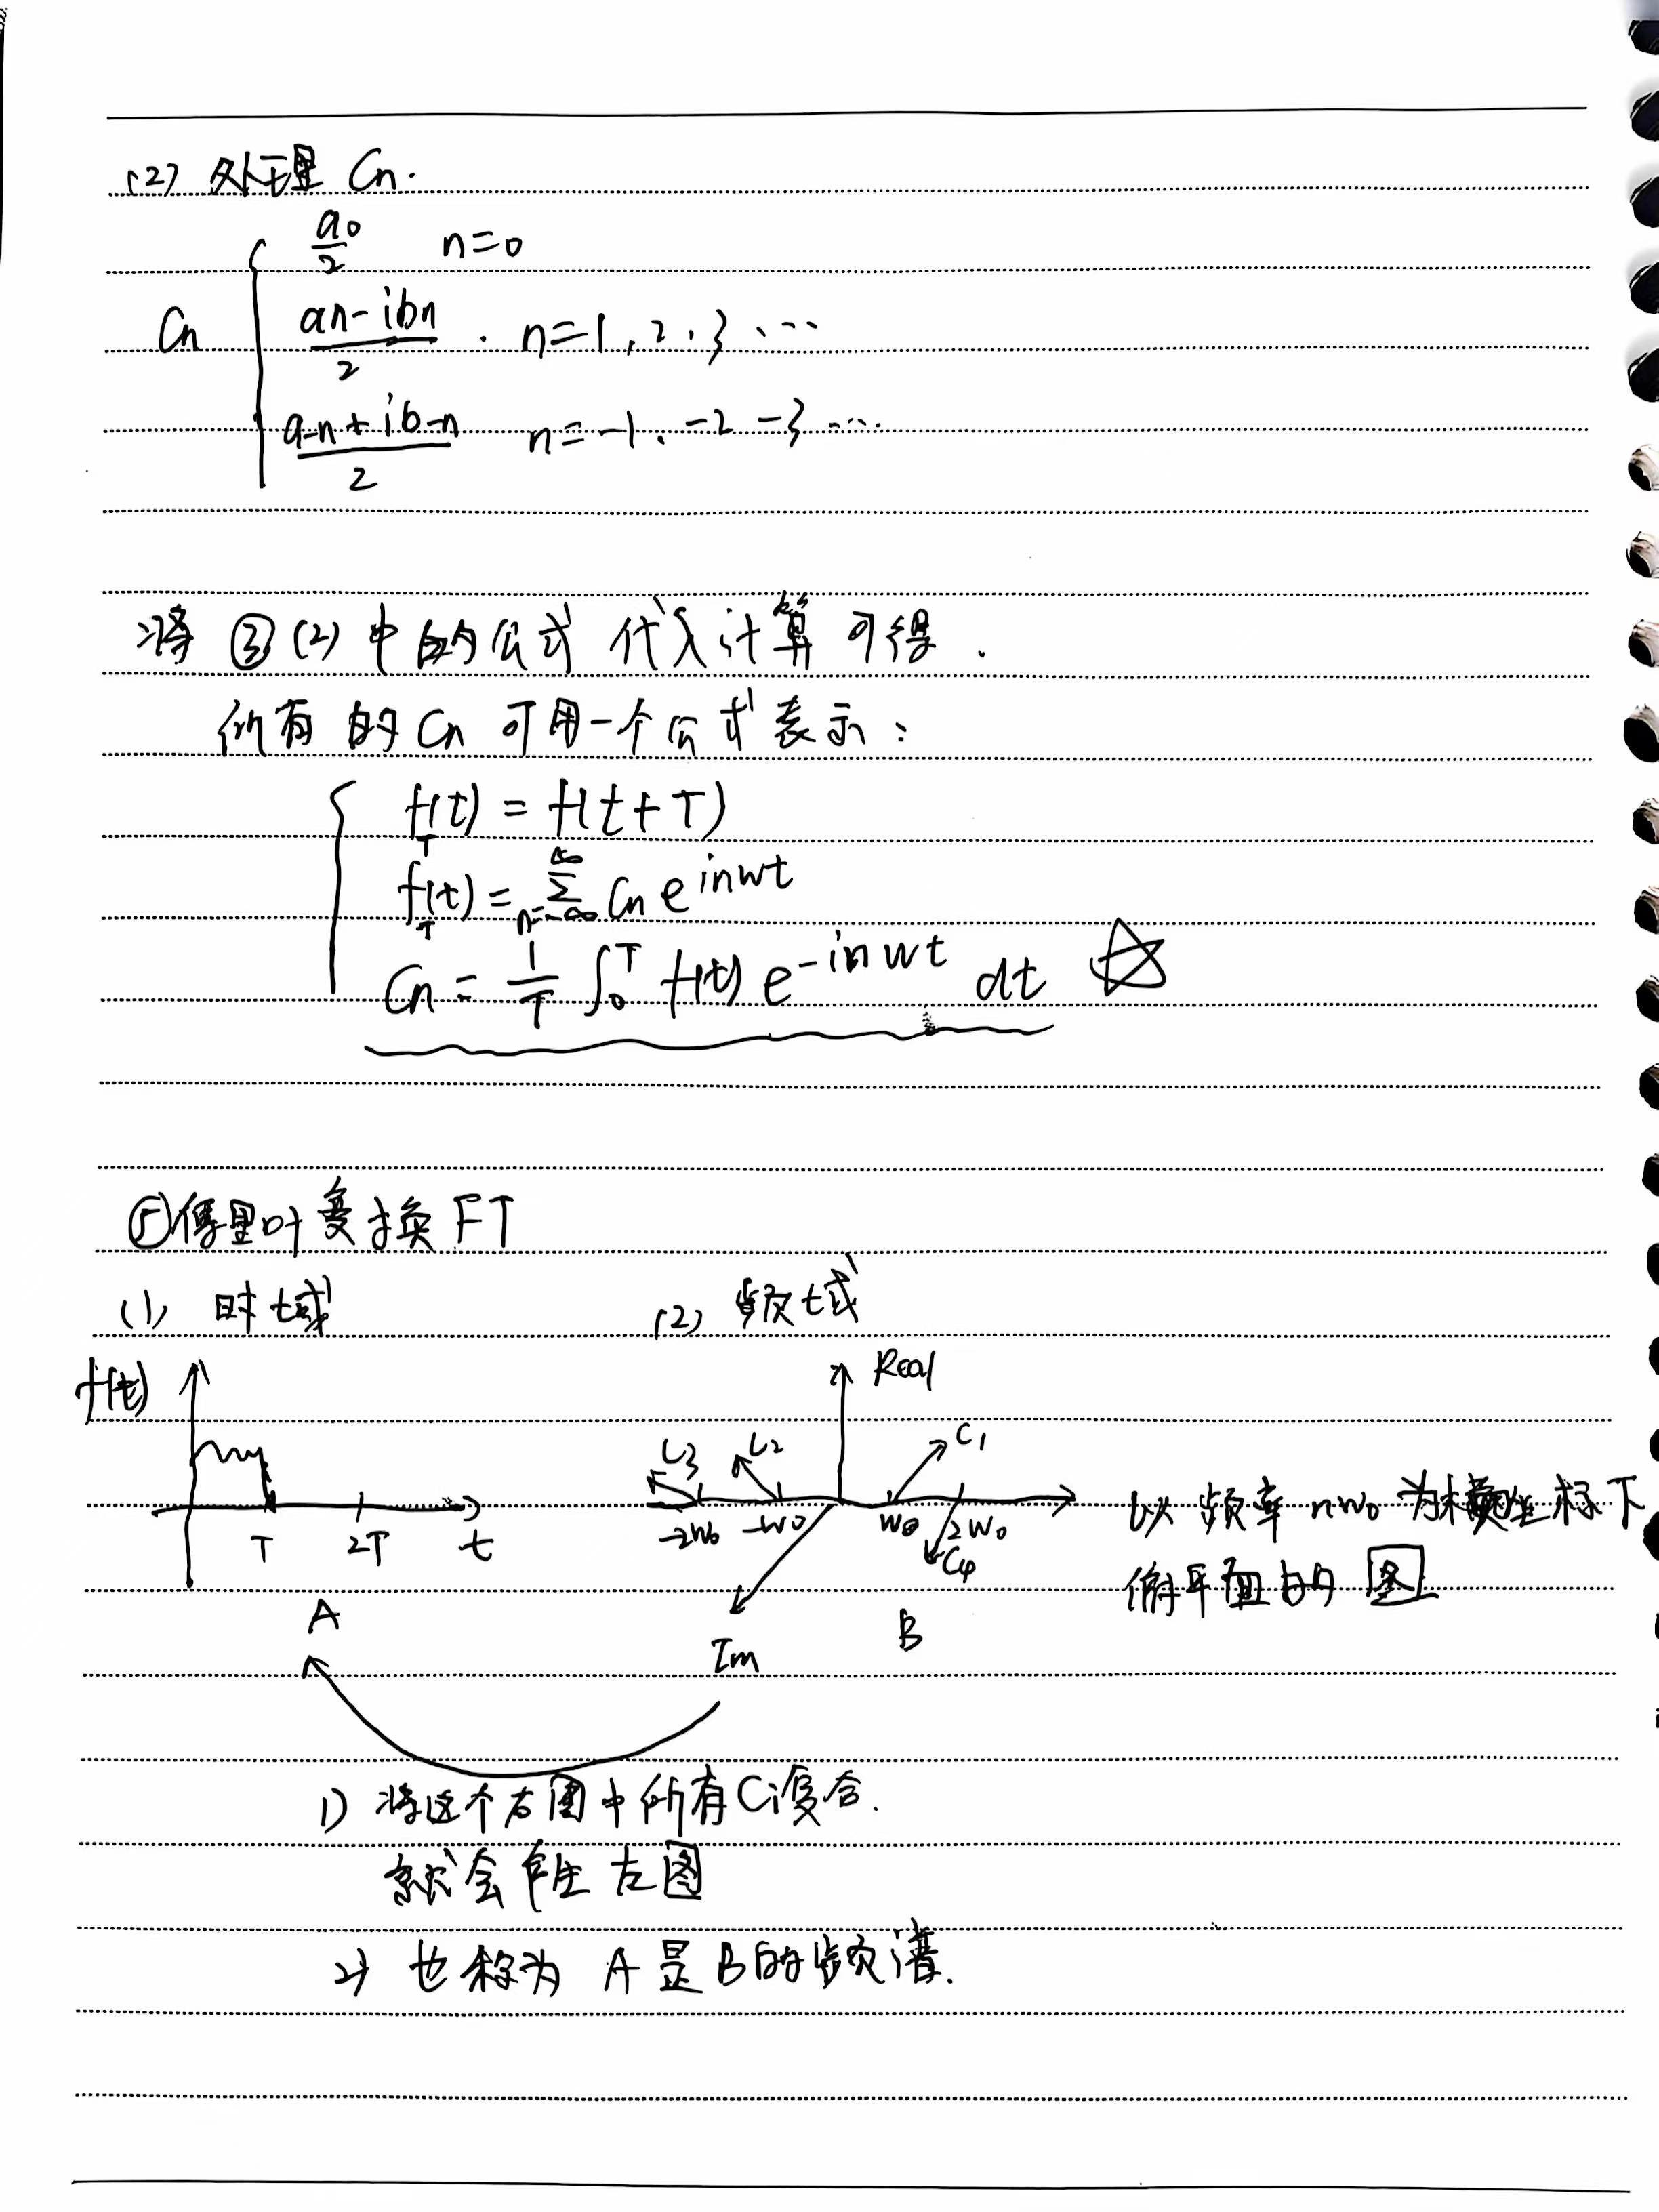 (2) 处理 Cn.
a0/2 n=0
Cn { (an-ibn)/2 . n=1, 2, 3、…
(a-n+ib-n)/2 n=-1、-2 -3 …
将 ③(2) 中的公式 代入计算 可得.
所有 的 Cn 可用一个公式表示:
fT(t) = f(t+T)
fT(t) = ∑_{n=-∞}^{∞} Cn e^{inwt}
Cn = 1/T ∫_0^T f(t) e^{-inwt} dt ☆
⑤傅里叶变换 FT
(1) 时域 (2) 频域
f(t) Real
C3 C2 C1
T 2T t -2w0 -w0 w0 2w0 以频率 nw0 为横坐标下
C4 俯平面的图
A Im B
1) 将这个右图中所有Ci复合.
就会产生左图
2) 也称为 A是B的频谱.